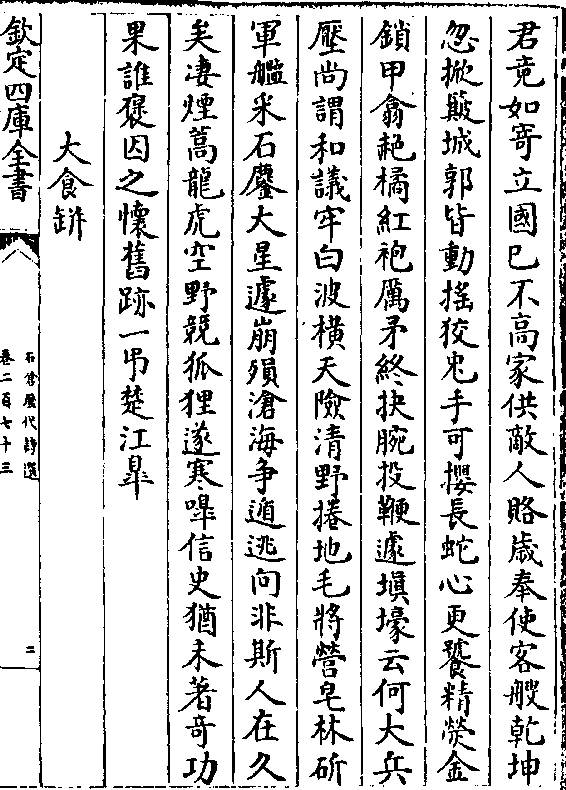 君竟如寄立國已不高家供敵人賂歳奉使客艘乾坤
忽掀簸城郭皆動揺狡兕手可攖長蛇心更饕精熒金
鎖甲翕赩橘紅袍厲矛終抉腕投鞭遽塡壕云何大兵
壓尚謂和議牢白波横天險清野捲地毛將營皂林斫
軍艦采石鏖大星遽崩殞滄海争遁逃向非斯人在久
矣凄煙蒿龍虎空野競狐狸遂寒嘷信史猶未著竒功
果誰襃因之懷舊跡一弔楚江臯
大食缾
欽定四庫全書
石倉歴代詩選
卷二百七十三
二